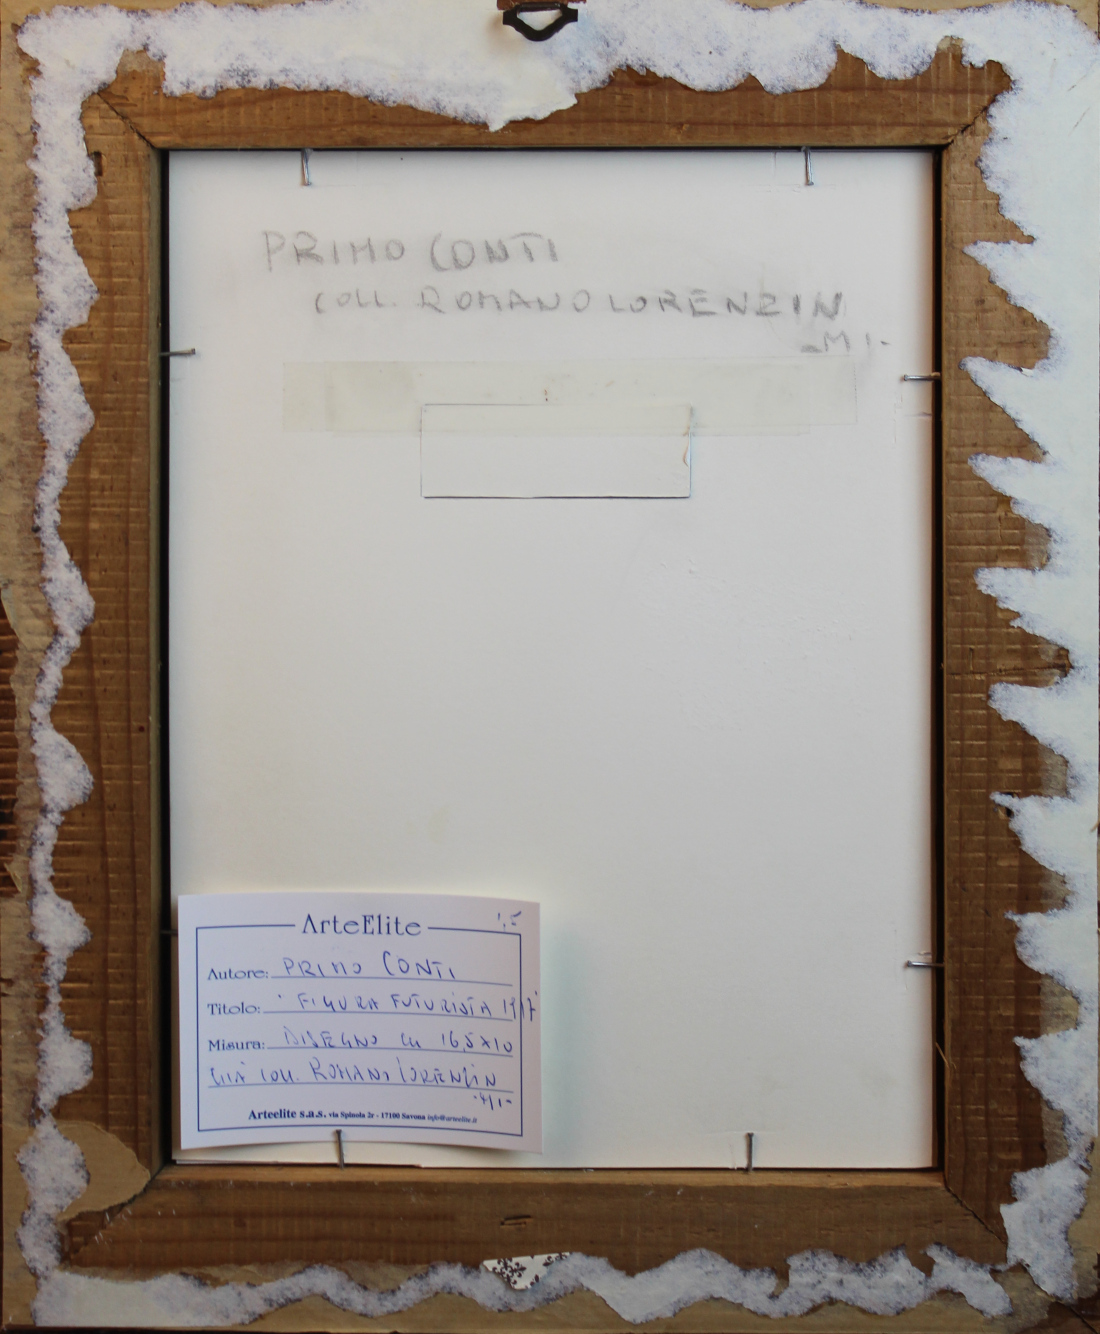 PRIMO CONTI
COLL. ROMANO LORENZIN
-MI-
ArteElite
1,5
Autore: PRIMO CONTI
Titolo: "FIGURA FUTURISTA 1917"
Misura: DISEGNO cm 16,5x10
GIÀ COLL. ROMANO LORENZIN
-MI-
Arteelite s.a.s. via Spinola 2r - 17100 Savona info@arteelite.it